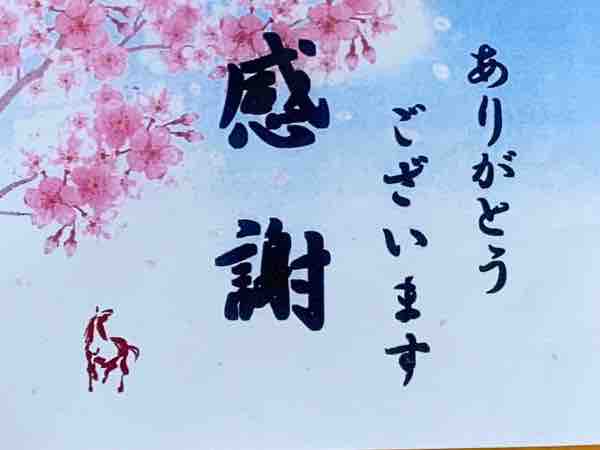 ありがとう
ございます
感謝